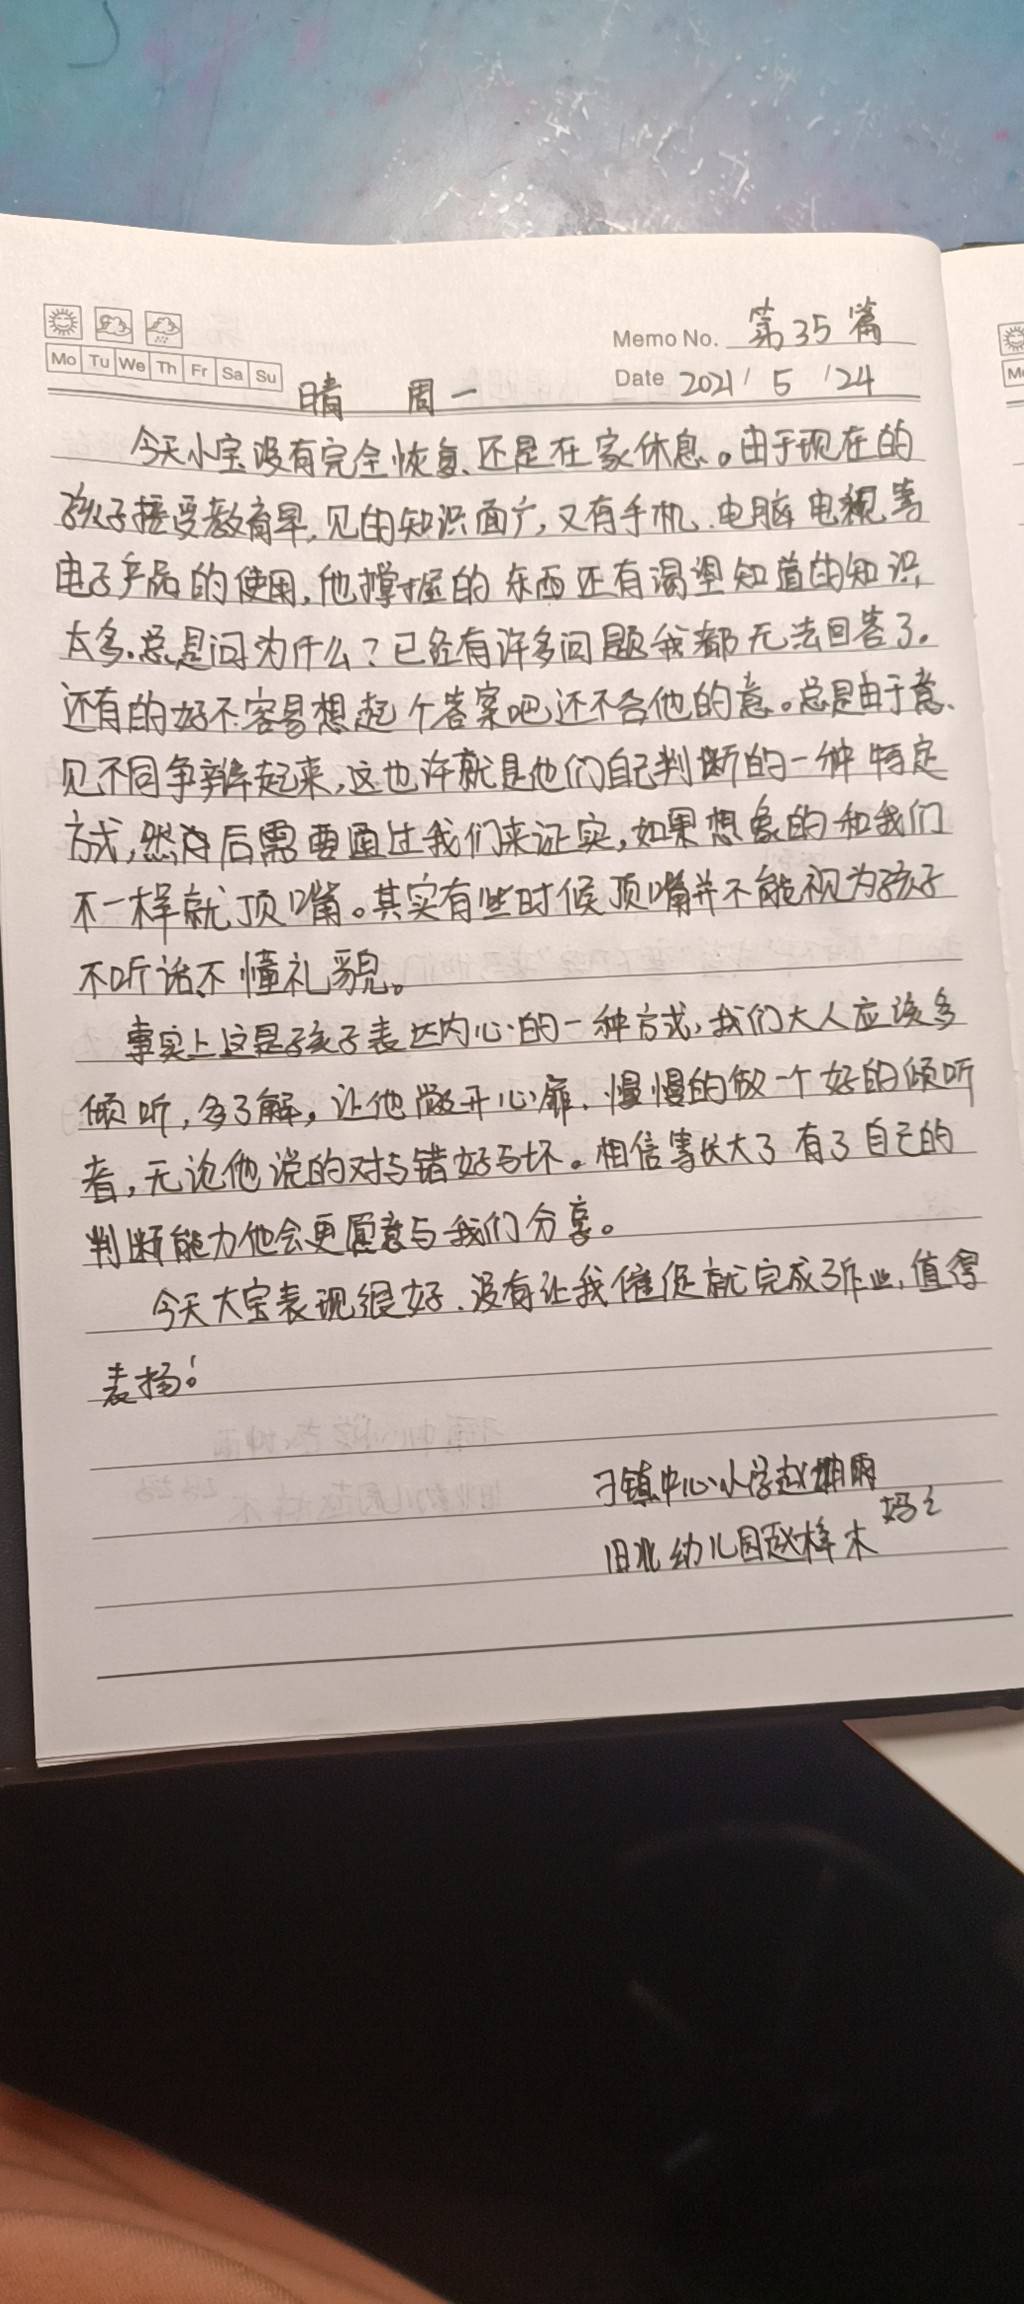 Memo No. 第35篇
Mo Tu We Th Fr Sa Su
Date 2021/5/24
晴 周一
今天小宝没有完全恢复、还是在家休息。由于现在的
孩子接受教育早,见的知识面广,又有手机、电脑电视等
电子产品的使用,他撑握的东西还有渴望知道的知识
太多.总是问为什么?已经有许多问题我都无法回答了。
还有的好不容易想起个答案吧还不合他的意。总是由于意、
见不同争辨起来,这也许就是他们自己判断的一种特定
方式,然后需要通过我们来证实,如果想象的和我们
不一样就顶嘴。其实有些时候顶嘴并不能视为孩子
不听话不懂礼貌。
事实上这是孩子表达内心的一种方式,我们大人应该多
倾听,多了解,让他敞开心扉、慢慢的做一个好的倾听
者,无论他说的对与错好与坏。相信等长大了有了自己的
判断能力他会更愿意与我们分享。
今天大宝表现很好.没有让我催促就完成了作业,值得
表扬!
刁镇中心小学赵姗雨
妈妈
旧北幼儿园赵梓木
Mo